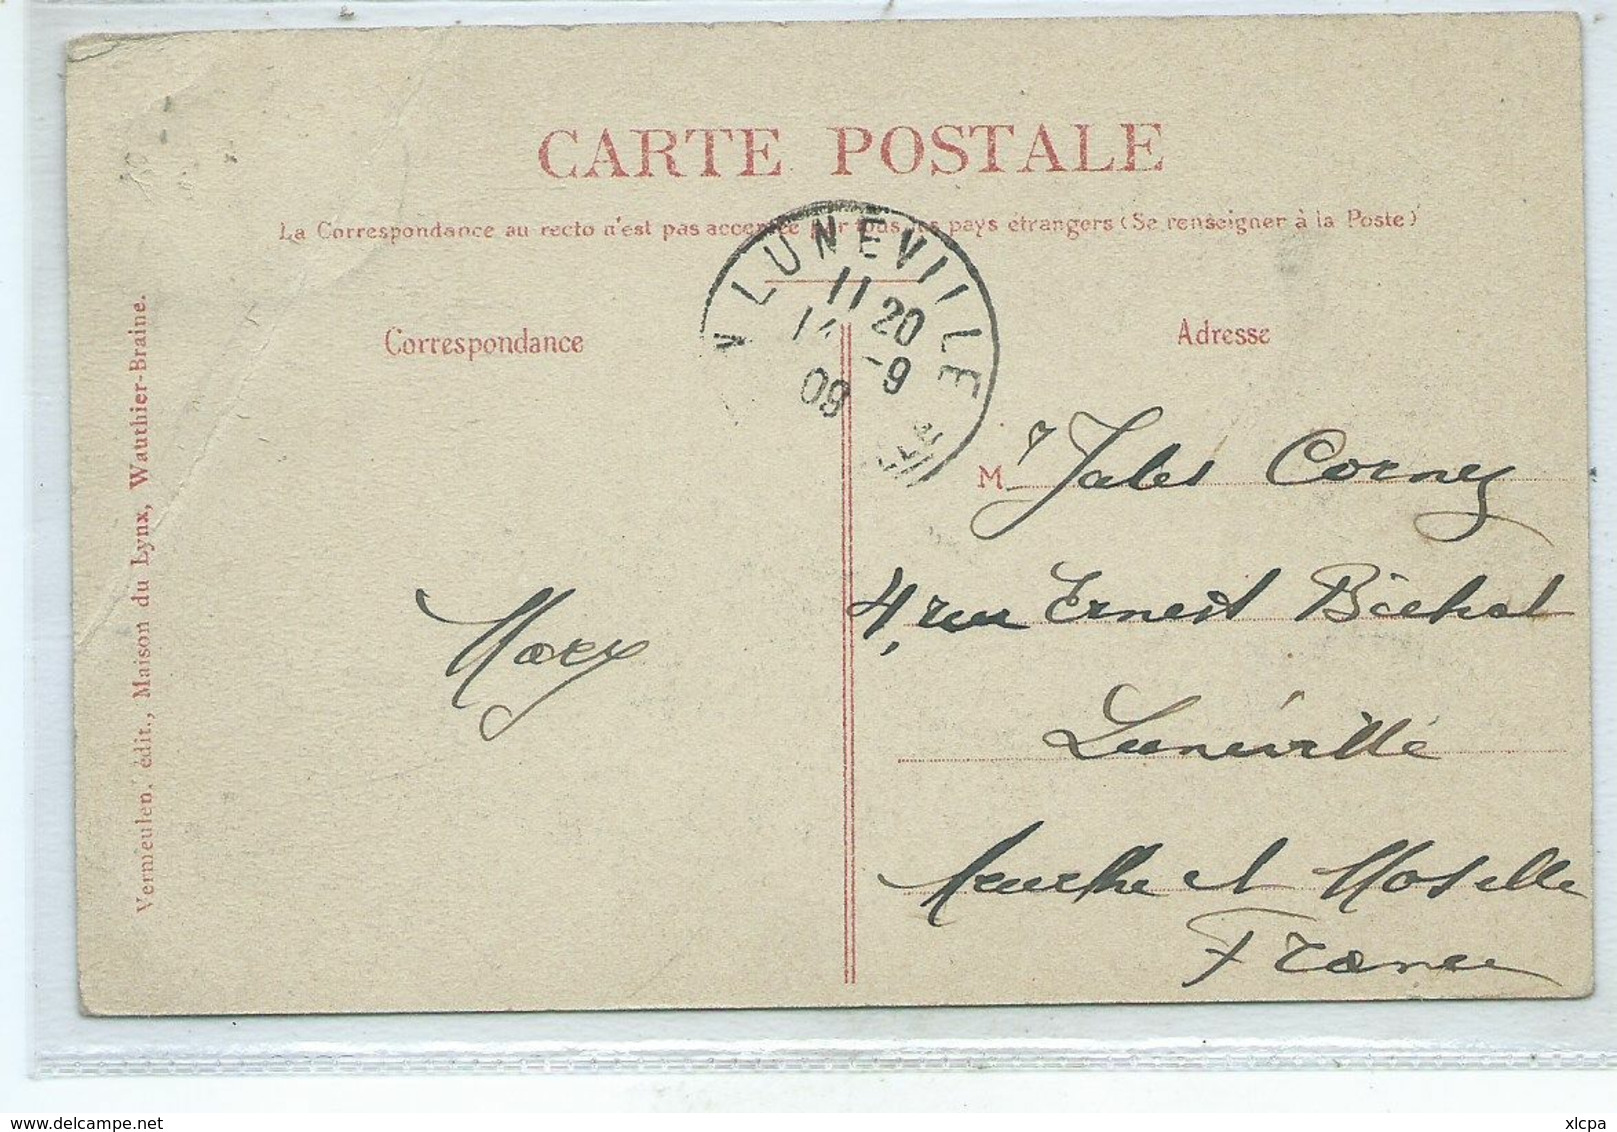 CARTE POSTALE
La Correspondance au recto n'est pas acceptée par tous les pays étrangers (Se renseigner à la Poste)
LUNEVILLE
11 20
14 -9
09
Correspondance
Adresse
Vermeulen, édit., Maison du Lynx, Wauthier-Braine.
M r Jules Corney
4, rue Ernest Bichat
Lunéville
Meurthe et Moselle
France
www.delcampe.net
xlcpa